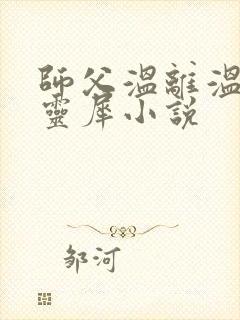 師父溫離溫
靈犀小說
邹河